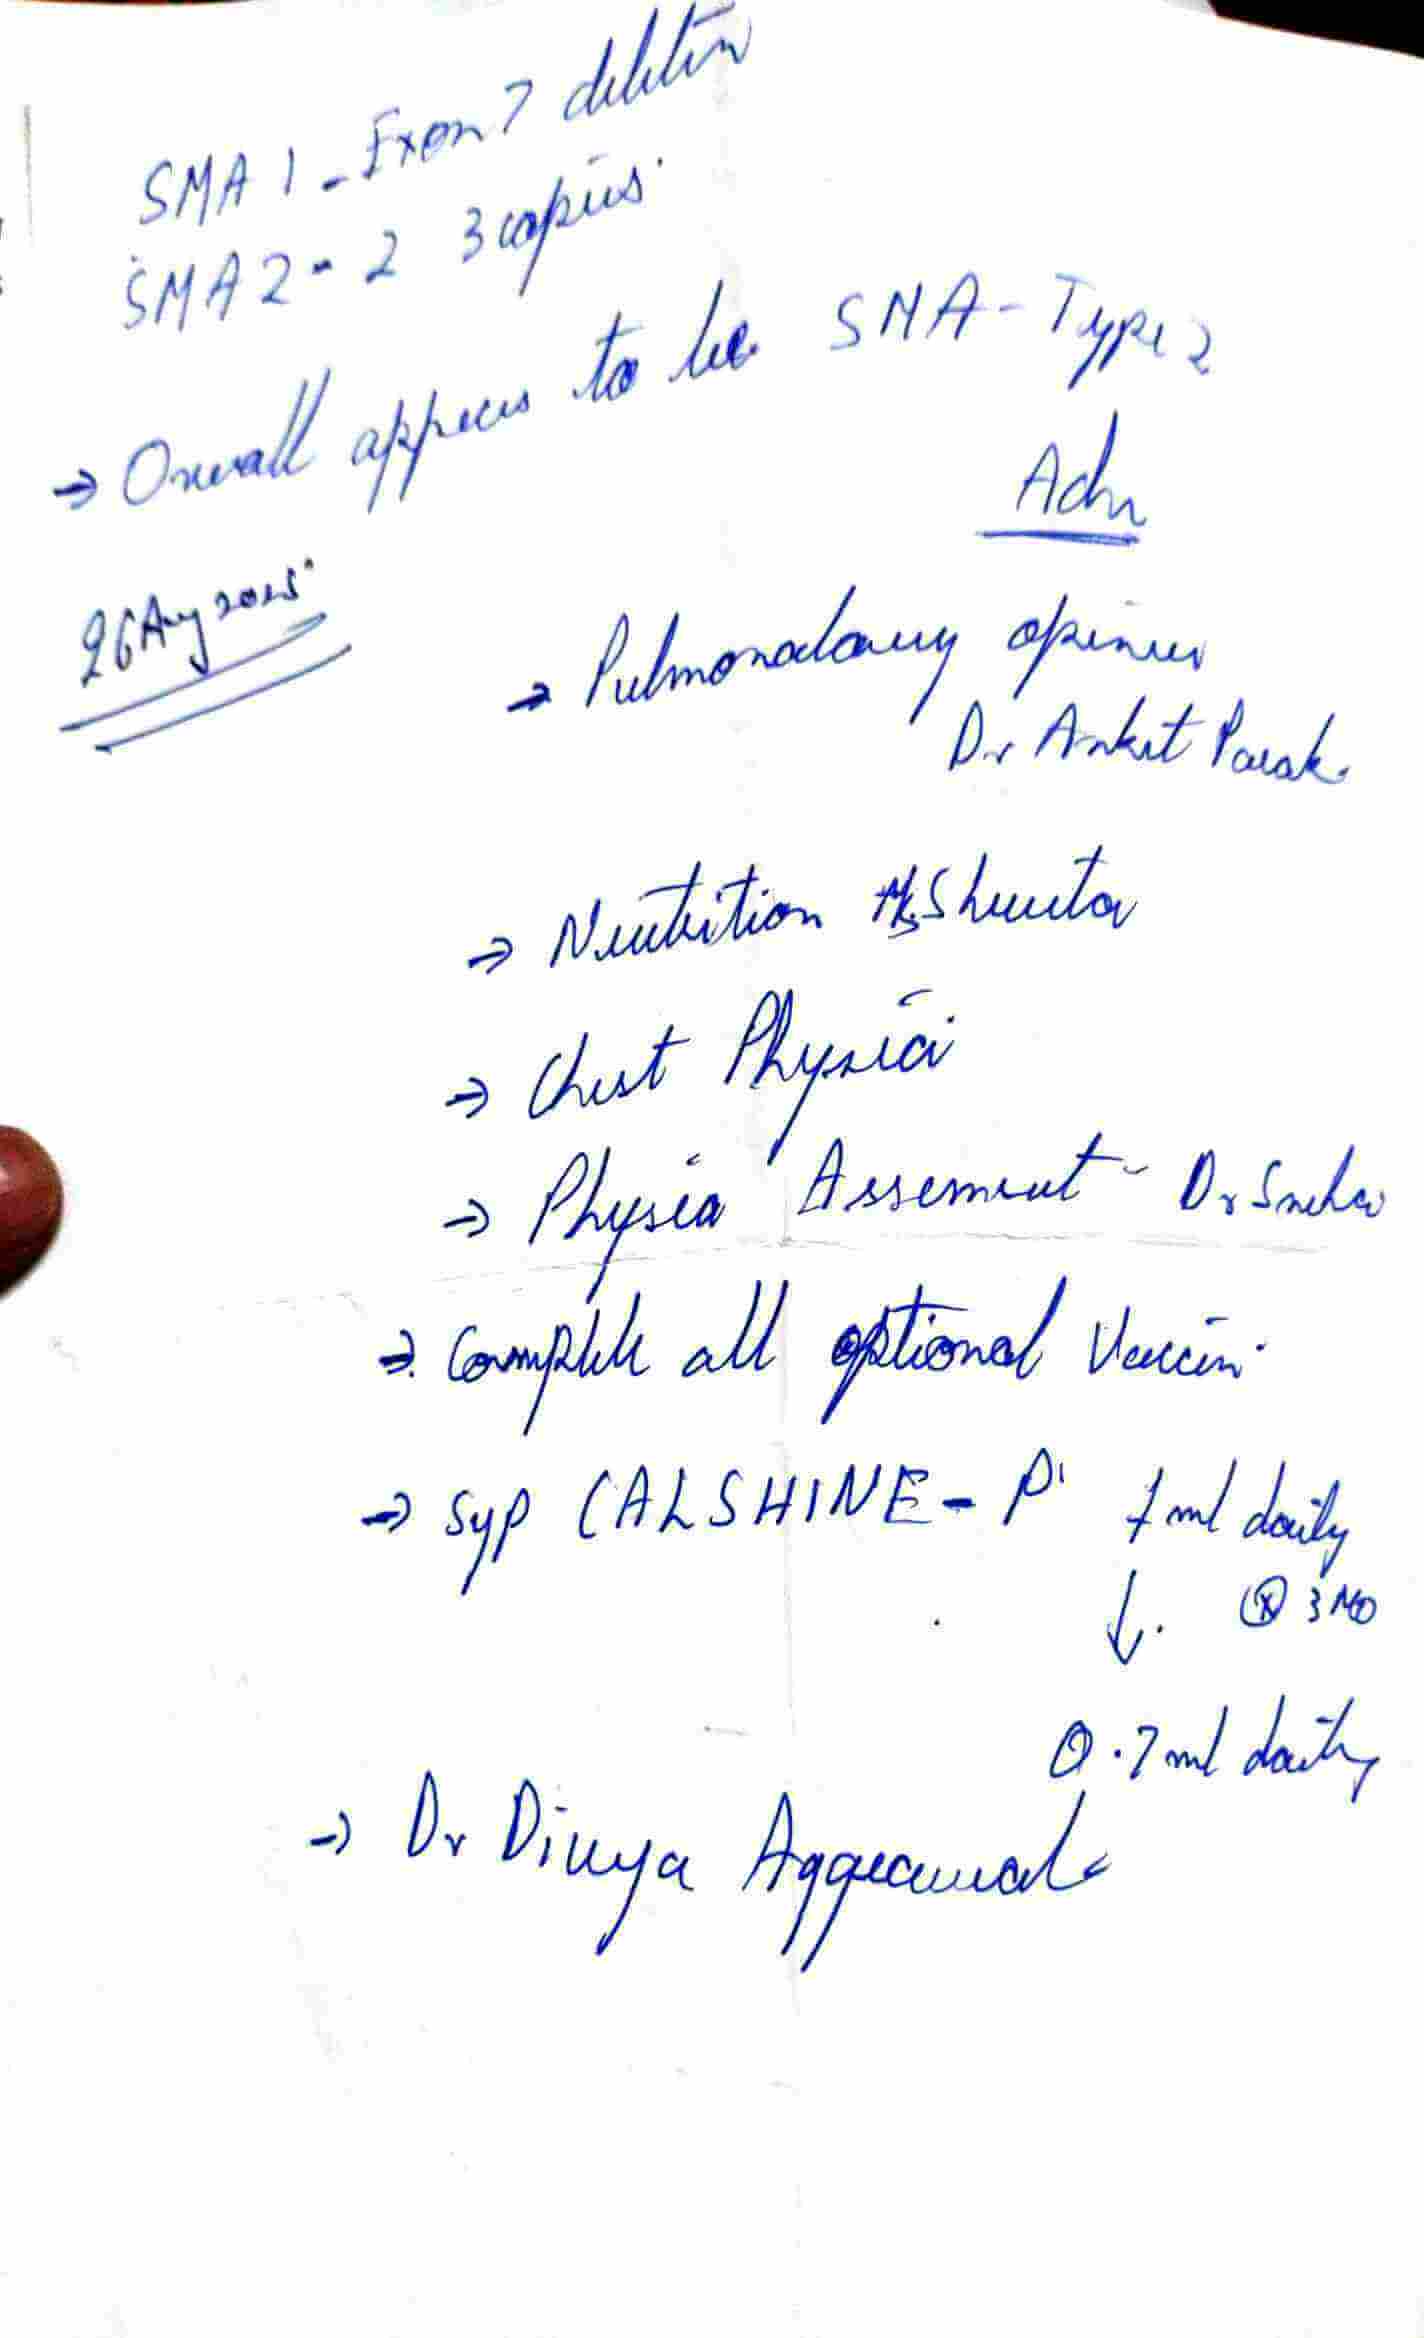 SMA 1 - Exon 7 deletion
SMA 2 - 2 3 copies.
→ Overall appears to be SMA - Type 2
Adv
26 Aug 2025
→ Pulmonology opinion
Dr Ankit Parak.
→ Neutrition Ms Shweta
→ Chest Physio
→ Physio Assement - Dr Sneha
→ Complete all optional Vaccin.
→ Syp CALSHINE - P 1 ml daily
↓ ⓧ 3 MO
0.7 ml daily
→ Dr Divya Aggrawal